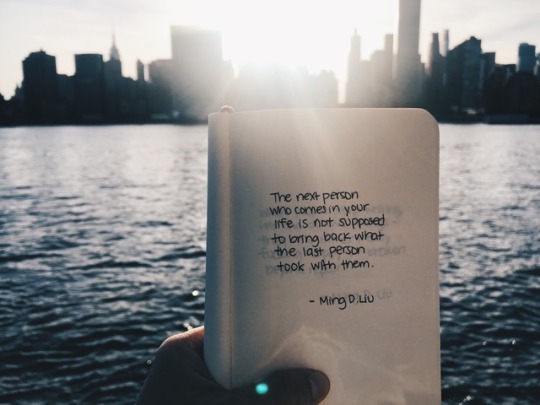 The next person
who comes in your
life is not supposed
to bring back what
the last person
took with them.
- Ming D. Liu